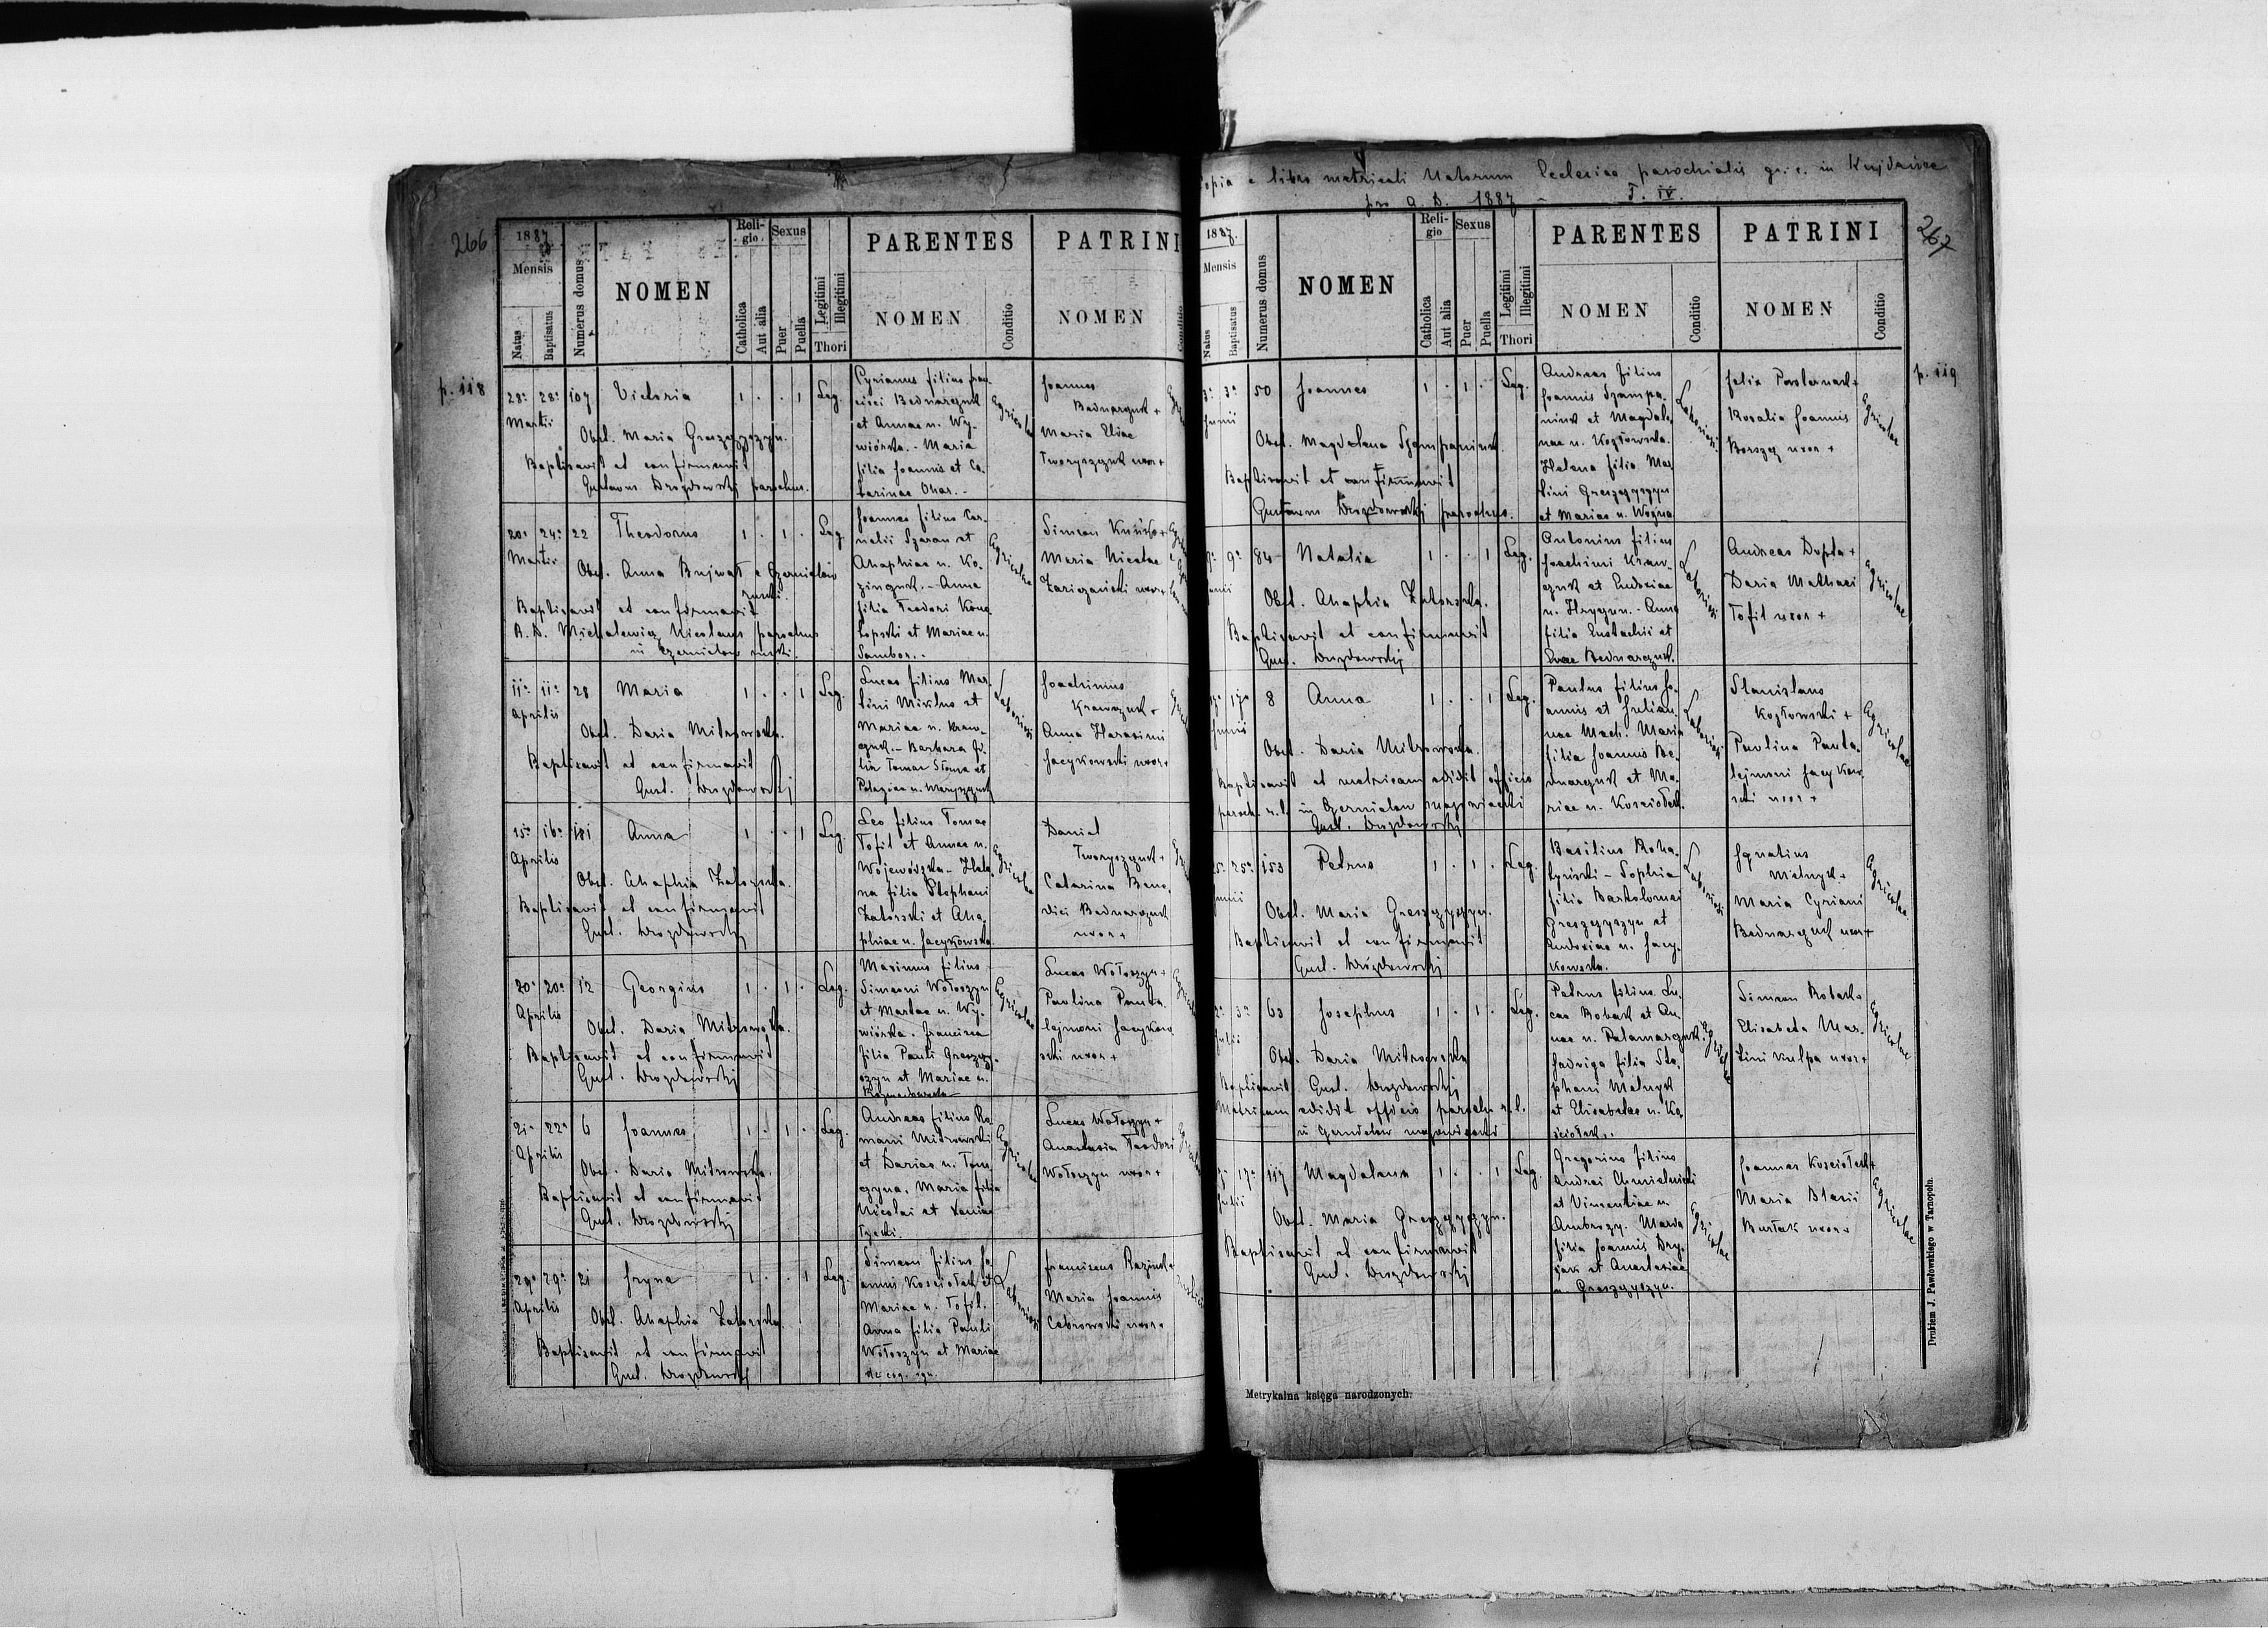 266
1887.
Mensis
Natus
Baptisatus
Numerus domus
NOMEN
Religio
Catholica
Aut alia
Sexus
Puer
Puella
Legitimi
Illegitimi
Thori
PARENTES
NOMEN
Conditio
PATRINI
NOMEN
p. 118
28a 28a 107 Victoria 1 . . 1 Leg.
Martii
Obst. Maria Greszczyszyn.
Baptisavit et confirmavit
Gustavus Drozdowskij parochus.
Cyrianus filius fran-
cisci Bednarczuk
et Annae n. Wy-
wiórka. - Maria
filia Joannis et Ca-
tarinae
Agricolae
Joannes
Bednarczuk +
Maria Eliae
Tworyszczuk uxor +
20a 24a 22 Theodorus 1 . 1 . Leg.
Martii
Obst. Anna Bujwał e Czernielów
ruski.
Baptisavit et confirmavit
A. D. Michalewicz Nicolaus parochus
in Czernielow ruski.
Joannes filius Cor-
nelii Szaran et
Anaphiae n. Ko-
zinczuk. - Anna
filia Teodori Kono-
topski et Mariae n.
Sambor. -
Agricolae
Simeon
Maria Nicolae
Zariczański uxor +
11a 11a 28 Maria 1 . . 1 Leg.
Aprilis
Obst. Daria Mitrowska.
Baptisavit et confirmavit
Gust. Drozdowskij
Lucas filius Mar-
tini Miklus et
Mariae n. Kraw-
czuk. - Barbara fi-
lia Tomae Słoma et
Pelagiae n.
Laboriosi
Joachimus
Krawczuk +
Anna Harasimi
Jacykowski uxor +
15a 16a 101 Anna 1 . . 1 Leg.
Aprilis
Obst. Anaphia Zatorska.
Baptisavit et confirmavit
Gust. Drozdowskij
Leo filius Tomae
Tofil et Annae n.
Wojewódzka - Hele-
na filia Stephani
Zatorski et Ana-
phiae n. Jacykowska.
Agricolae
Daniel
Tworyszczuk +
Catarina Bene-
dici Bednarczuk
uxor +
20a 20a 12 Georgius 1 . 1 . Leg.
Aprilis
Obst. Daria Mitrowska.
Baptisavit et confirmavit
Gust. Drozdowskij
Maximus filius
Simeoni Wołoszyn
et Martae n. Wy-
wiórka. Francisca
filia Pauli Greszczy-
szyn et Mariae n.
Agricolae
Lucas Wołoszyn +
Paulina Panta-
lejmoni Jacykow-
ski uxor +
21a 22a 6 Joannes 1 . 1 . Leg.
Aprilis
Obst. Daria Mitrowska.
Baptisavit et confirmavit
Gust. Drozdowskij
Andreas filius Ro-
mani Mitrowski
et Dariae n. Tom-
czyna. Maria filia
Nicolai et Xeniae
Agricolae
Lucas Wołoszyn +
Anastasia Teodori
Wołoszyn uxor +
29a 29a 21 Iryna 1 . . 1 Leg.
Aprilis
Obst. Anaphia Zatorska.
Baptisavit et confirmavit
Gust. Drozdowskij
Simeon filius Jo-
annis Kosciołek et
Mariae n. Tofil.
Anna filia Pauli
Wołoszyn et Mariae
Laboriosi
Franciscus
Maria Joannis
Cebrowski uxor +
Copia e libro metricali Natorum Ecclesiae parochialis gr. c. in Kujdańce
pro a. D. 1887 - T. IV.
267
1887.
Mensis
Natus
Baptisatus
Numerus domus
NOMEN
Religio
Catholica
Aut alia
Sexus
Puer
Puella
Legitimi
Illegitimi
Thori
PARENTES
NOMEN
Conditio
PATRINI
NOMEN
Conditio
p. 119
3a 3a 50 Joannes 1 . 1 . Leg.
Junii
Obst. Magdalena Szampaniuk.
Baptisavit et confirmavit
Gustavus Drozdowskij parochus.
Andreas filius
Joannis Szampa-
niuk et Magdale-
nae n. Kozłowska.
Helena filia Mar-
tini Greszczyszyn
et Mariae n. Wozna
Laboriosi
Felix Posternak +
Rosalia Joannis
Borszcz uxor +
Agricolae
9a 84 Natalia 1 . . 1 Leg.
Junii
Obst. Anaphia Zatorska.
Baptisavit et confirmavit
Gust. Drozdowskij
Antonius filius
Joachimi Kraw-
czuk et Eudoxiae
n. Hryczyn. - Anna
filia Eustachii et
Evae Bednarczuk.
Laboriosi
Andreas Dupta +
Daria Mathaei
Tofil uxor +
Agricolae
17a 8 Anna 1 . . 1 Leg.
Junii
Obst. Daria Mitrowska.
Baptisavit et metricam edidit officio
paroch. r. l. in Czernielow mazowiecki
Gust. Drozdowskij
Paulus filius Jo-
annis et Julian-
nae Mach. Maria
filia Joannis Be-
dnarczuk et Ma-
riae n. Kosciołek.
Laboriosi
Stanislaus
Kozłowski +
Paulina Panta-
lejmoni Jacykow-
ski uxor +
Agricolae
25a 25a 153 Petrus 1 . 1 . Leg.
Junii
Obst. Maria Greszczyszyn.
Baptisavit et confirmavit
Gust. Drozdowskij
Basilius Roha-
tyński - Sophia
filia Bartolomei
Greszczyszyn et
Eudoxiae n. Jacy-
kowska.
Laboriosi
Ignatius
Melnyk +
Maria Cyriani
Bednarczuk uxor +
Agricolae
2a 3a 63 Josephus 1 . 1 . Leg.
Julii
Obst. Daria Mitrowska
Baptisavit Gust. Drozdowskij
Metricam edidit officio paroch. r. l.
in Czernielow mazowiecki
Petrus filius Lu-
cae Robak et An-
nae n. Palamarczuk.
Jadviga filia Ste-
phani Melnyk
et Elisabetae n. Ko-
sciołek.
Agricolae
Simeon Robak +
Elisabeta Mar-
tini Kulpa uxor +
Agricolae
17a 117 Magdalena 1 . . 1 Leg.
Julii
Obst. Maria Greszczyszyn.
Baptisavit et confirmavit
Gust. Drozdowskij
Gregorius filius
Andrei Chmielnicki
et Vincentiae n.
Ambrozy. Marta
filia Joannis Dry-
jak et Anastasiae
n. Greszczyszyn.
Agricolae
Joannes Kosciołek +
Maria Blasii
Burlak uxor +
Agricolae
Metrykalna księga narodzonych.
Drukiem J. Pawłowskiego w Tarnopolu.